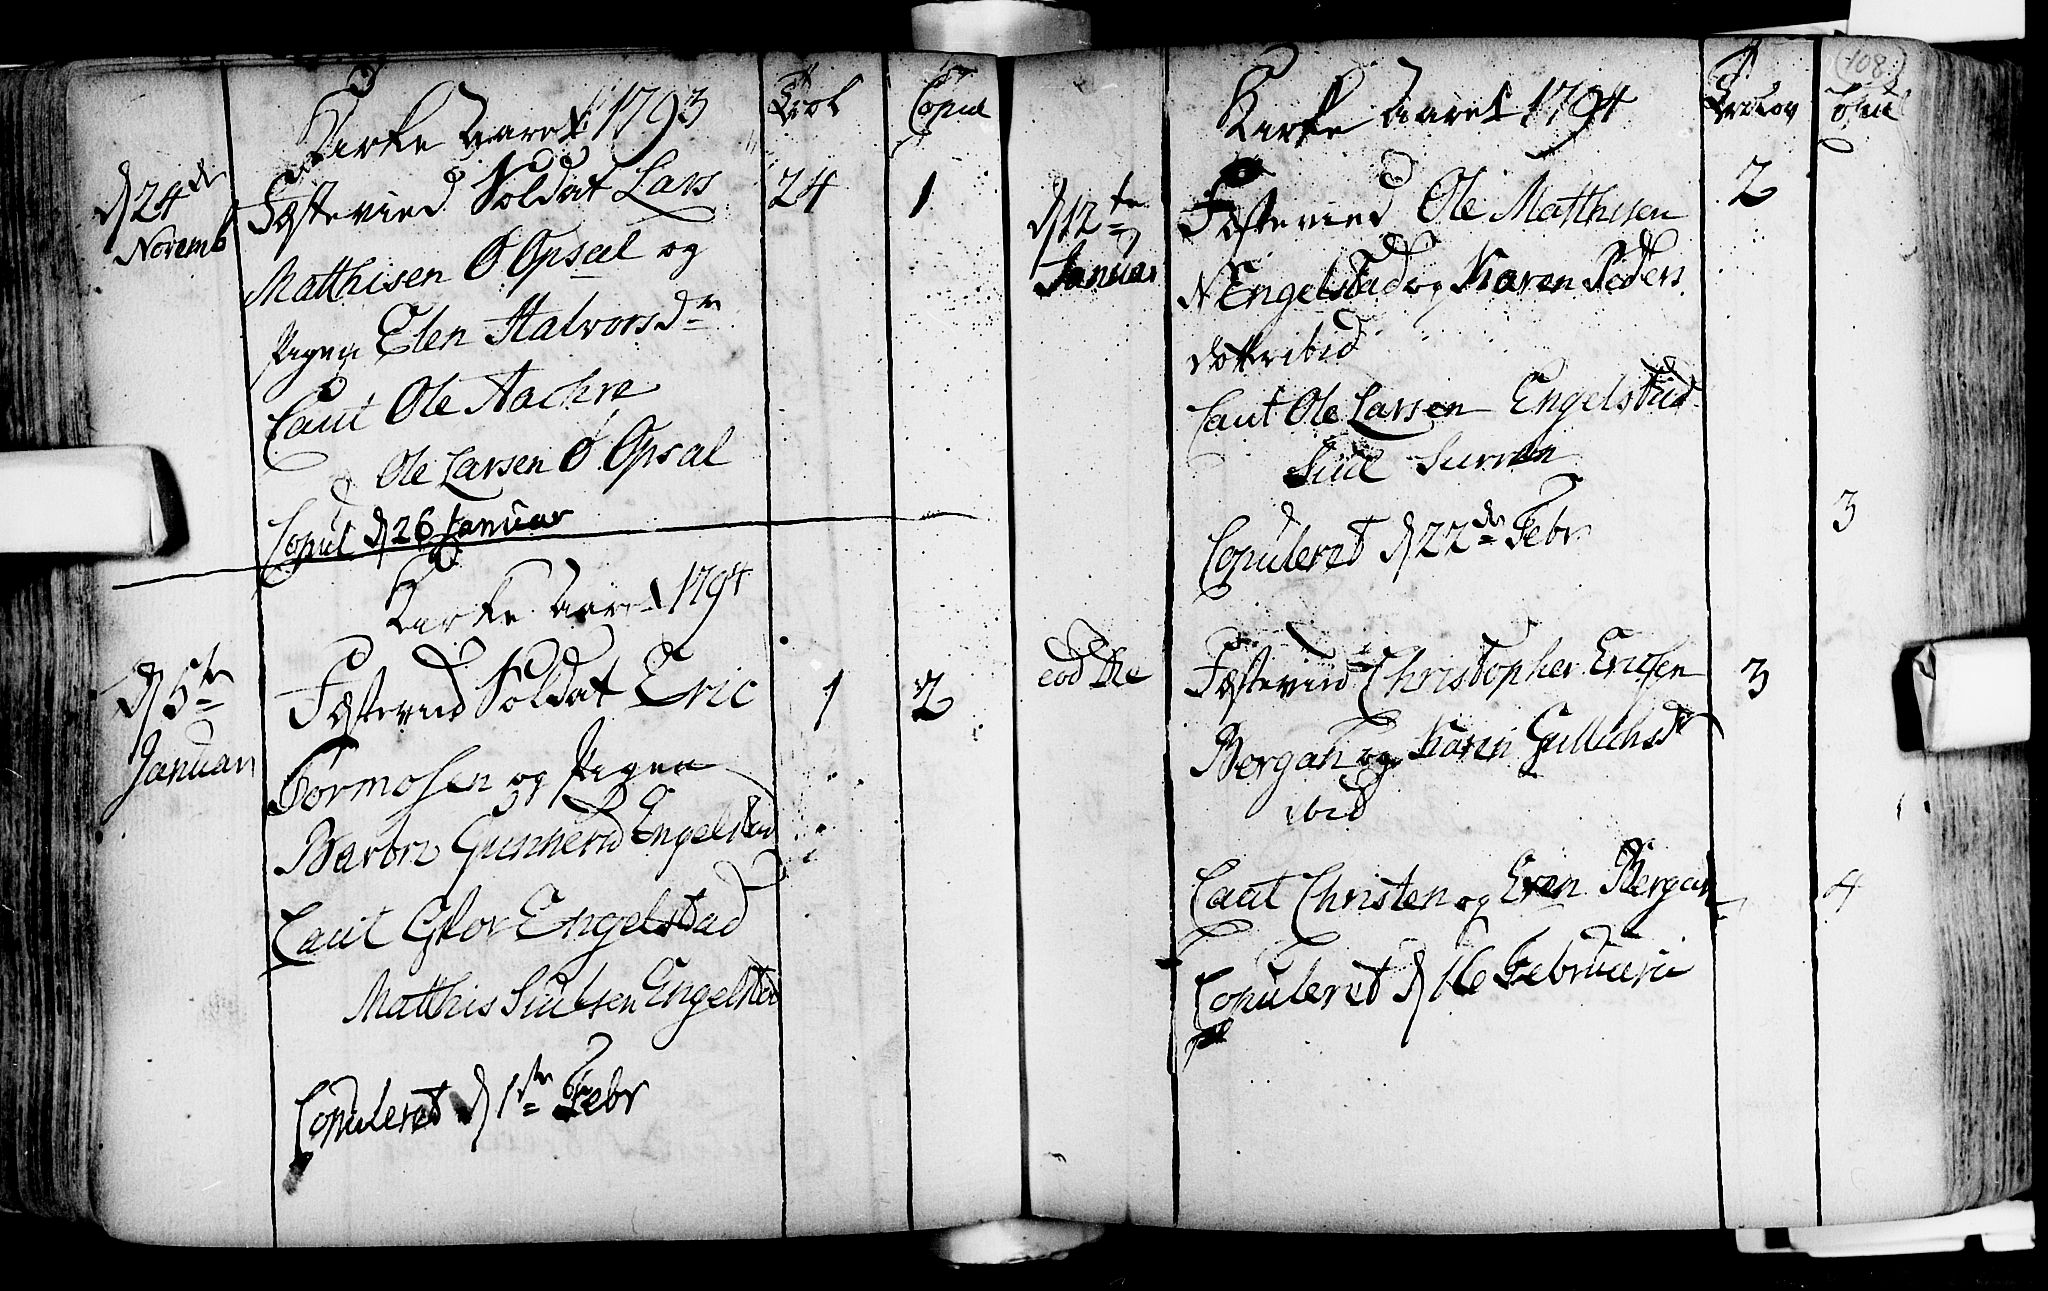 Kirke Aaret 1793
Trol
Copul
d 24de
Novemb
Fæstevied Soldat Lars
24
1
Matthisen Ø Opsal og
Pigen Elen Halvorsdr
Caut Ole Aachre
Ole Larsen Ø Opsal
Copul d 26 Januar
Kirke Aaret 1794
d 5te
Januari
Fæstevied Soldat Eric
1
2
Tormosen og Pigen
Baron Gunnersd Engelstad
Caut Glor Engelstad
Matthis Siulsen Engelstad
Copuleret d 1ste Febr
108
Kirke Aaret 1794
Trolov
Copul
d 12te
Januar
Fæstevied Ole Matthisen
2
N Engelstad og Karen Peders
dotter ibid
Caut Ole Larsen Engelstad
Siul Surren
Copuleret d 22de Febr
3
eod Die
Fæstevied Christopher Ericsen
3
Bergan og Karen Gullichsdr
ibid
Caut Christen og Even Bergan
4
Copuleret d 16 Februarii